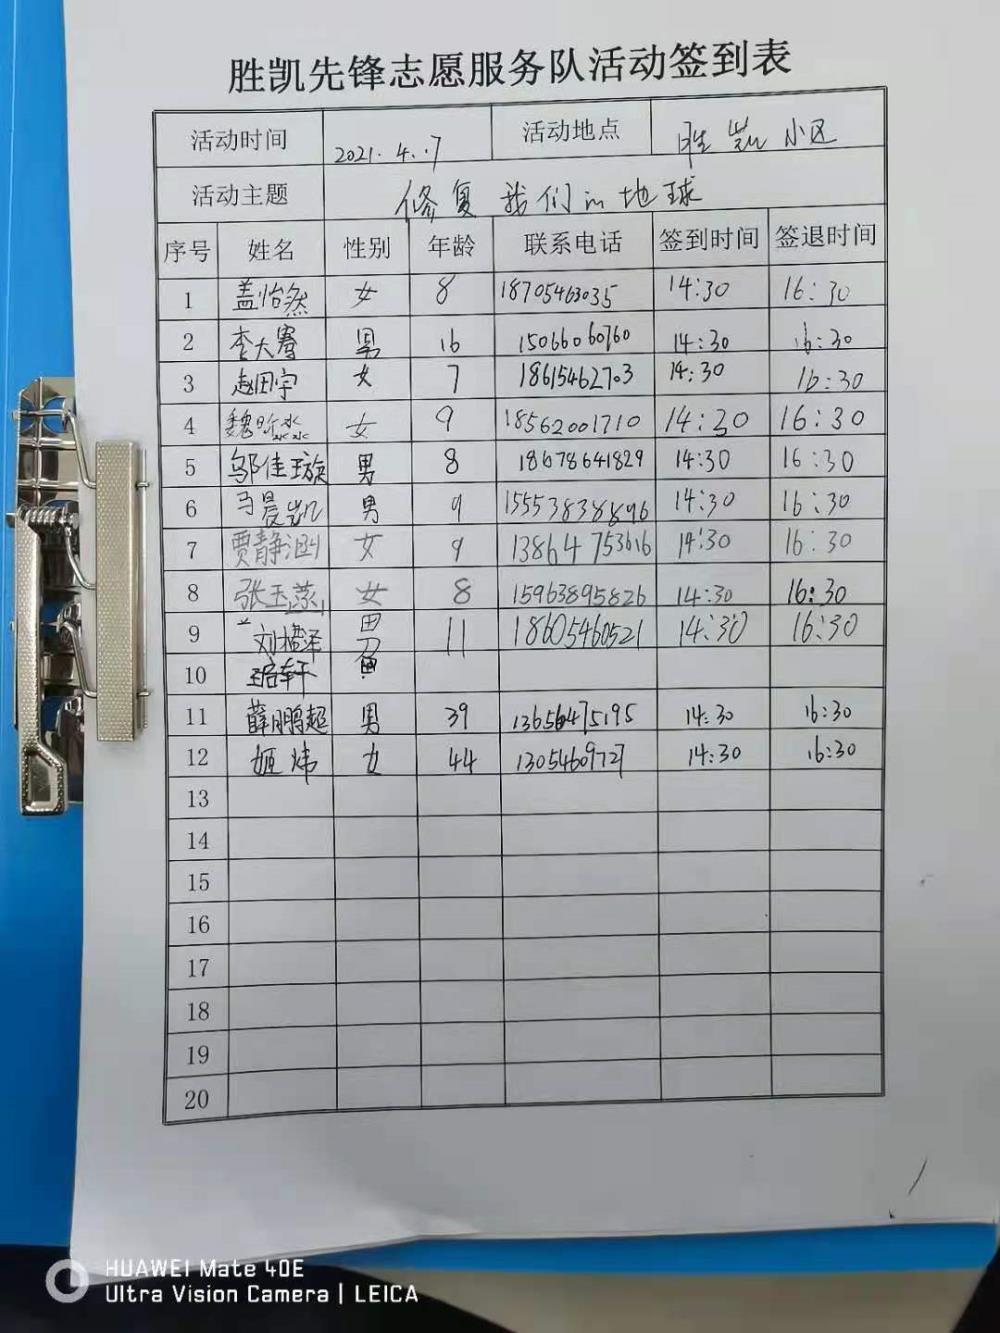 胜凯先锋志愿服务队活动签到表
活动时间 2021.4.7 活动地点 胜凯小区
活动主题 修复我们的地球
序号 姓名 性别 年龄 联系电话 签到时间 签退时间
1 盖怡然 女 8 18705463035 14:30 16:30
2 李大骞 男 16 15066060760 14:30 16:30
3 赵田宇 女 7 18615462703 14:30 16:30
4 魏昕淼 女 9 18562001710 14:30 16:30
5 邬佳璇 男 8 18678641829 14:30 16:30
6 马晨凯 男 9 15553838896 14:30 16:30
7 贾静涵 女 9 13864753616 14:30 16:30
8 张玉蕊 女 8 15963895826 14:30 16:30
9 刘桓泽 男 11 18605460521 14:30 16:30
10
11 薛鹏超 男 39 13656475195 14:30 16:30
12 姬炜 女 44 13054609727 14:30 16:30
13
14
15
16
17
18
19
20
HUAWEI Mate 40E
Ultra Vision Camera | LEICA